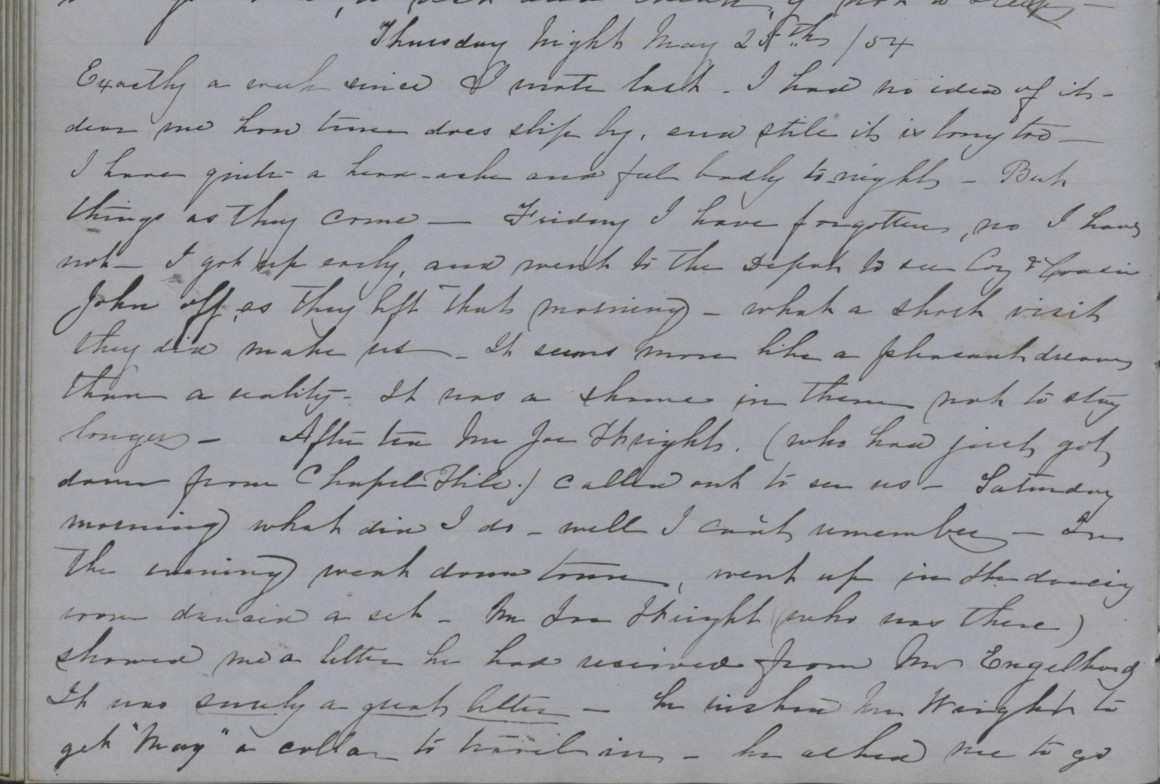 Thursday Night May 25th /54
Exactly a week since I wrote last - I had no idea of it -
dear me how time does slip by, and still it is long too -
I have quite a head-ache and feel badly to-night - But
things as they come - Friday I have forgotten, no I have
not - I got up early, and went to the Depot to see Coz & Cousin
John off, as they left that morning - what a short visit
they did make us - It seems more like a pleasant dream
than a reality - It was a shame in them not to stay
longer - After tea Mr Joe Wright. (who had just got
down from Chapel Hill.) called out to see us - Saturday
morning what did I do - well I can't remember - In
the evening went down town, went up in the dancing
room danced a set - Mr Joe Wright (who was there)
showed me a letter he had received from Mr Engelhard
It was surely a great letter - he wished Mr Wright to
get "May" a collar to travel in - he asked me to go